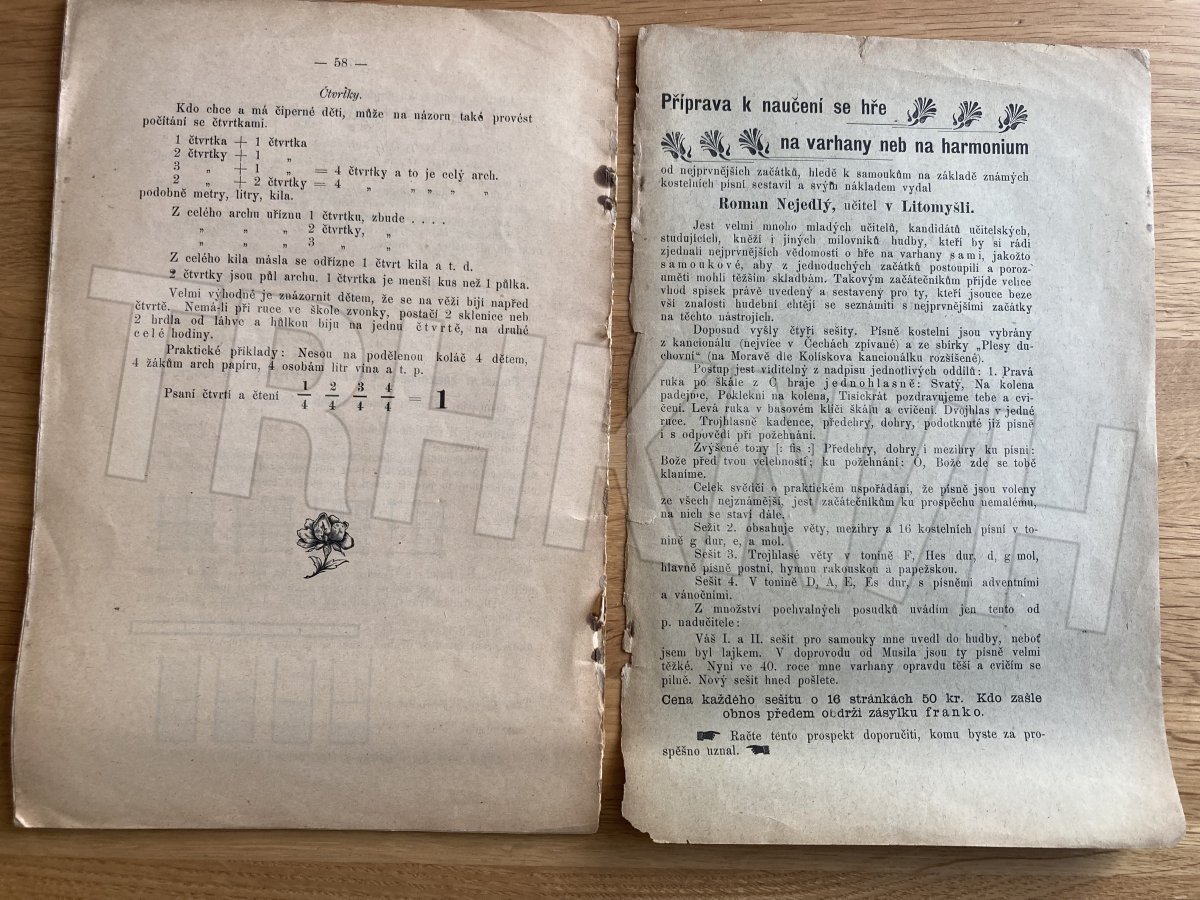 — 58 —
Čtvrtky.
Kdo chce a má čiperné děti, může na názoru také provést
počítání se čtvrtkami.
1 čtvrtka + 1 čtvrtka
2 čtvrtky + 1 „
3 „ + 1 „ = 4 čtvrtky a to je celý arch.
2 „ + 2 čtvrtky = 4 „ „ „ „ „
podobně metry, litry, kila.
Z celého archu uříznu 1 čtvrtku, zbude . . . .
„ „ „ 2 čtvrtky, „
„ „ „ 3 „ „
Z celého kila másla se odřízne 1 čtvrt kila a t. d.
2 čtvrtky jsou půl archu. 1 čtvrtka je menší kus než 1 půlka.
Velmi výhodné je znázornit dětem, že se na věži bijí napřed
čtvrtě. Nemá-li při ruce ve škole zvonky, postačí 2 sklenice neb
2 hrdla od láhve a hůlkou biju na jednu čtvrtě, na druhé
celé hodiny.
Praktické příklady: Nesou na podělenou koláč 4 dětem,
4 žákům arch papíru, 4 osobám litr vína a t. p.
Psaní čtvrtí a čtení 1/4 2/4 3/4 4/4 = 1
Příprava k naučení se hře
na varhany neb na harmonium
od nejprvnějších začátků, hledě k samoukům na základě známých
kostelních písní sestavil a svým nákladem vydal
Roman Nejedlý, učitel v Litomyšli.
Jest velmi mnoho mladých učitelů, kandidátů učitelských,
studujících, kněží i jiných milovníků hudby, kteří by si rádi
zjednali nejprvnějších vědomostí o hře na varhany sami, jakožto
samoukové, aby z jednoduchých začátků postoupili a poroz-
uměti mohli těžším skladbám. Takovým začátečníkům přijde velice
vhod spisek právě uvedený a sestavený pro ty, kteří jsouce beze
vší znalosti hudební chtějí se seznámiti s nejprvnějšími začátky
na těchto nástrojích.
Doposud vyšly čtyři sešity. Písně kostelní jsou vybrány
z kancionálu (nejvíce v Čechách zpívané) a ze sbírky „Plesy du-
chovní“ (na Moravě dle Kolískova kancionálku rozšíšené).
Postup jest viditelný z nadpisu jednotlivých oddílů: 1. Pravá
ruka po škále z C hraje jednohlasně: Svatý, Na kolena
padejme, Poklekni na kolena, Tisíckrát pozdravujeme tebe a cvi-
čení. Levá ruka v basovém klíči škálu a cvičení. Dvojhlas v jedné
ruce. Trojhlasné kadence, předehry, dohry, podotknuté již písně
i s odpovědí při požehnání.
Zvýšené tony [: fis :] Předehry, dohry i mezihry ku písni:
Bože před tvou velebností; ku požehnání: Ó, Bože zde se tobě
klaníme.
Celek svědčí o praktickém uspořádání, že písně jsou voleny
ze všech nejznámější, jest začátečníkům ku prospěchu nemalému,
na nich se staví dále.
Sešit 2. obsahuje věty, mezihry a 16 kostelních písní v to-
nině g dur, e, a mol.
Sešit 3. Trojhlasé věty v tonině F, Hes dur, d, g mol,
hlavně písně postní, hymnu rakouskou a papežskou.
Sešit 4. V tonině D, A, E, Es dur, s písněmi adventními
a vánočními.
Z množství pochvalných posudků uvádím jen tento od
p. nadučitele:
Váš I. a II. sešit pro samouky mne uvedl do hudby, neboť
jsem byl lajkem. V doprovodu od Musila jsou ty písně velmi
těžké. Nyní ve 40. roce mne varhany opravdu těší a cvičím se
pilně. Nový sešit hned pošlete.
Cena každého sešitu o 16 stránkách 50 kr. Kdo zašle
obnos předem obdrží zásylku franko.
Račte tento prospekt doporučiti, komu byste za pro-
spěšno uznal.
TRHKNIH